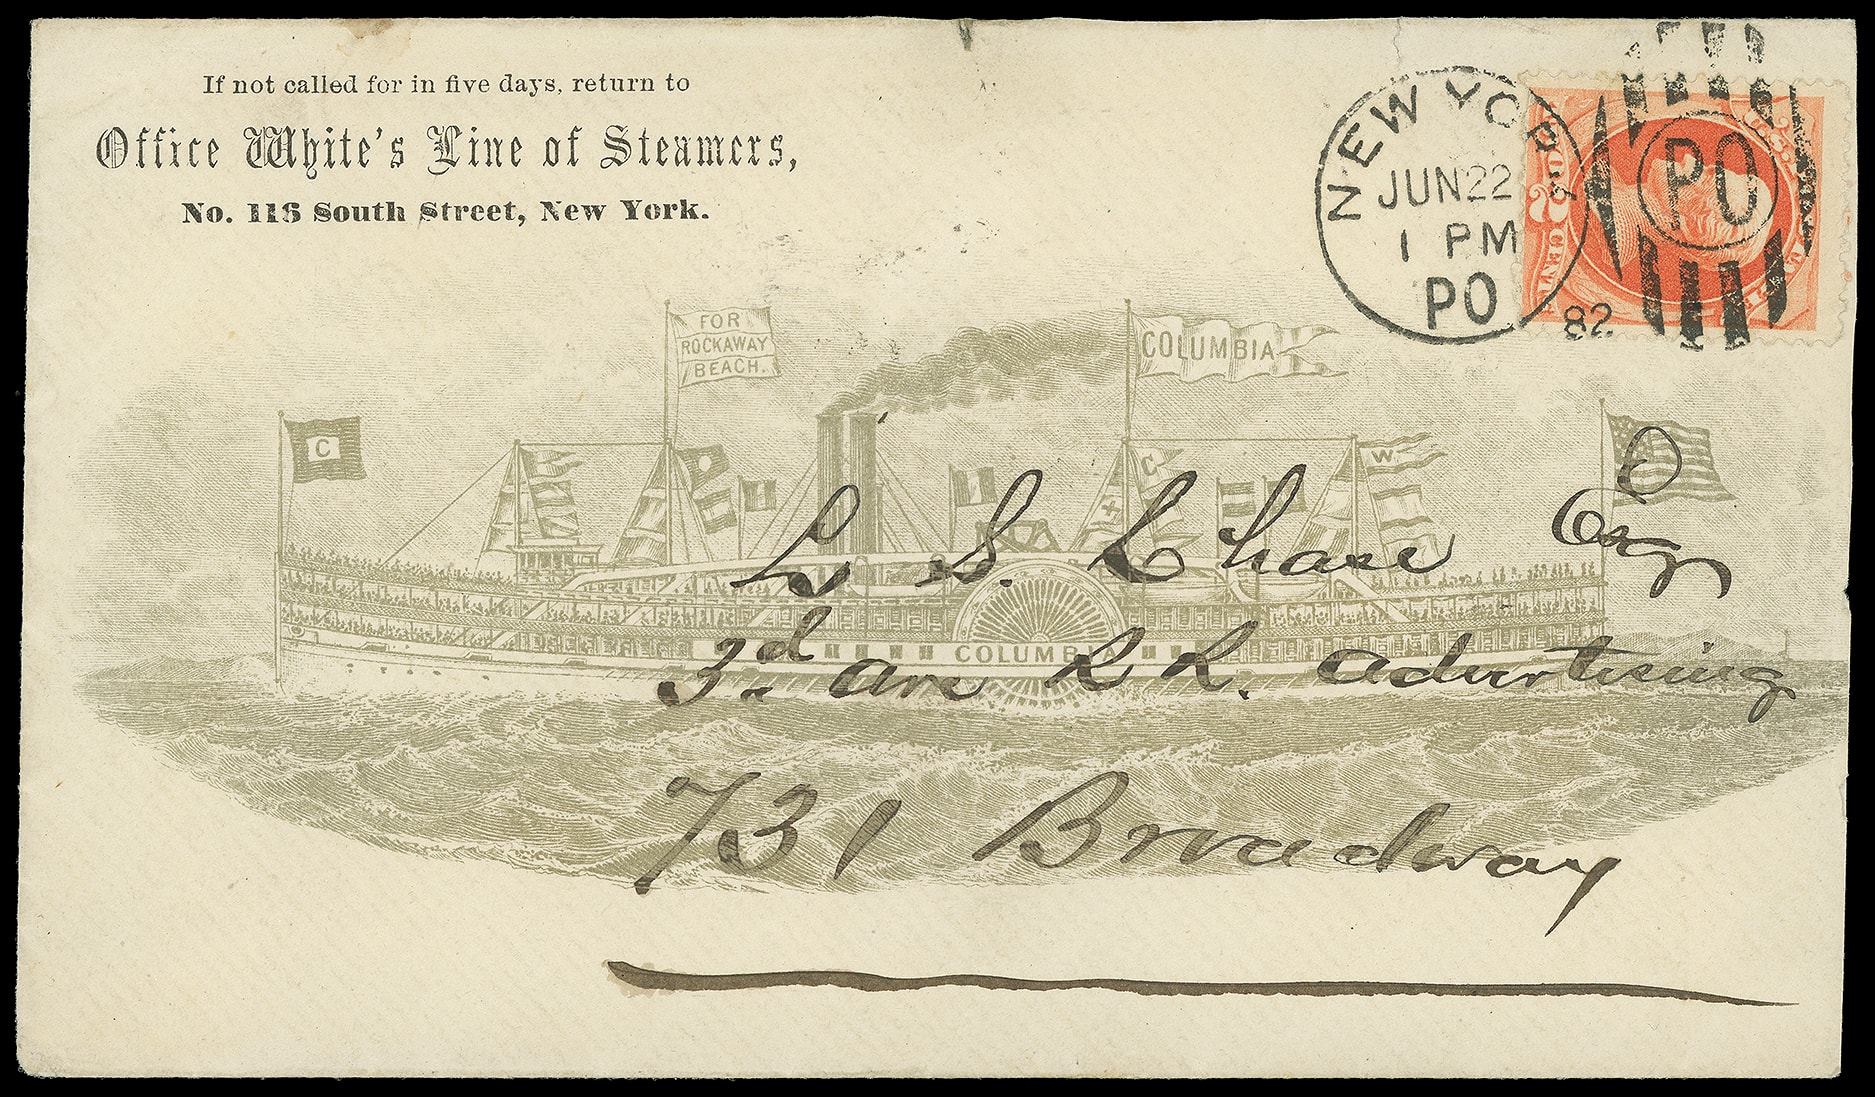 If not called for in five days, return to
Office White's Line of Steamers,
No. 116 South Street, New York.
NEW YORK
JUN 22
1 PM
PO
82
PO
2 CENTS
FOR
ROCKAWAY
BEACH.
COLUMBIA
C
C
W
COLUMBIA
L. S. Chase Esq
3d. Ave R R. Advertising
731 Broadway